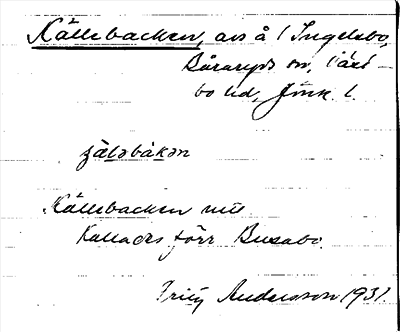 Källebacken, avs å 1 Ingelsbo,
Båraryds sn, Västbo hd, Jönk. l.
källabàkan
Källebacken
Kallades förr Busabo.
Frity Andersson 1931.